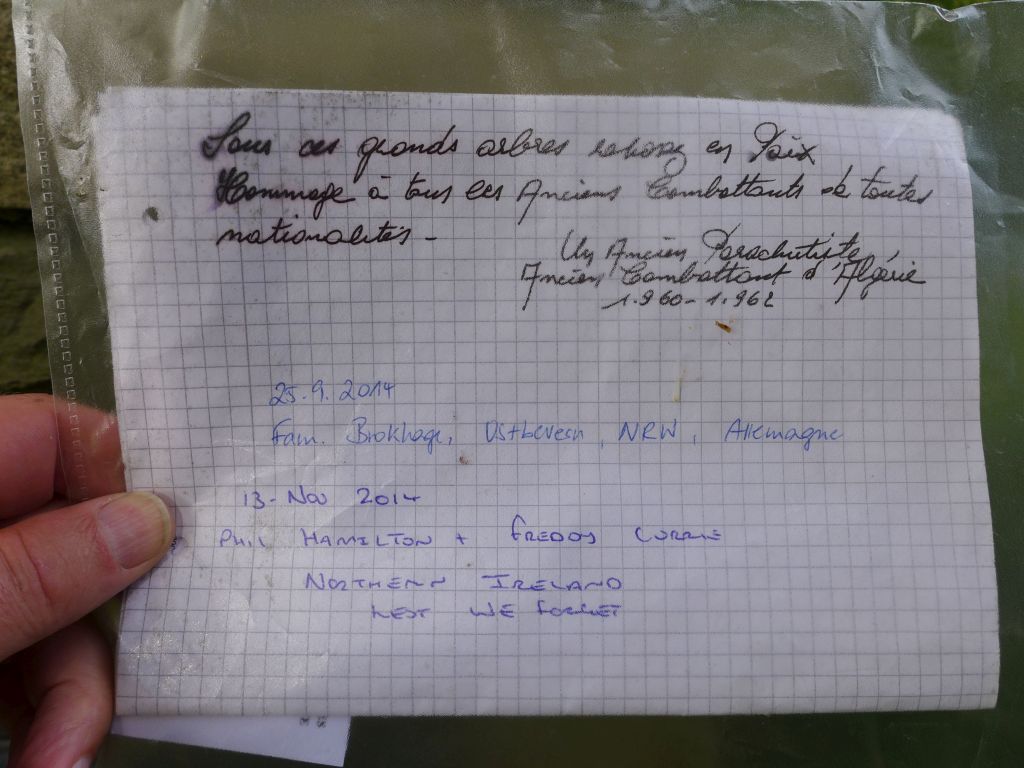 Sous ces grands arbres reposez en Paix
Hommage à tous les Anciens Combattants de toutes
nationalités -
Un Ancien Parachutiste
Ancien Combattant d'Algérie
1.960 - 1.962
25.9.2014
Fam. Brokhage, Ostbevern, NRW, Allemagne
13 - Nov 2014
PHIL HAMILTON + FREDDY CURRIE
NORTHERN IRELAND
LEST WE FORGET